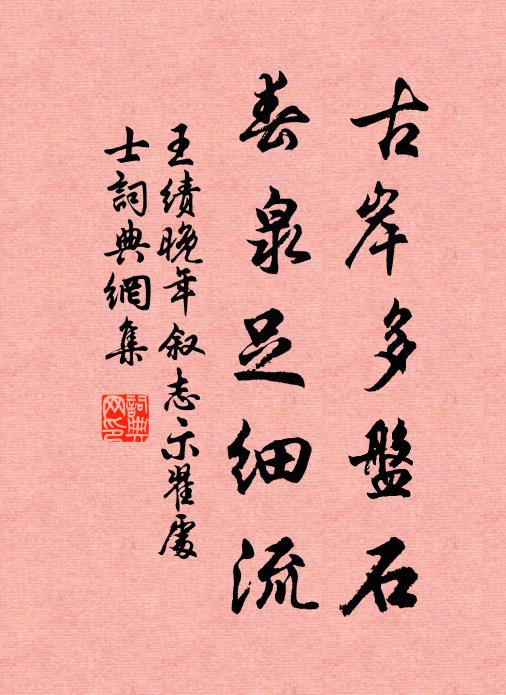 古岸多盤石
春泉足細流
王績晚年叙志示翟處
士詞典網集
詞典
网印